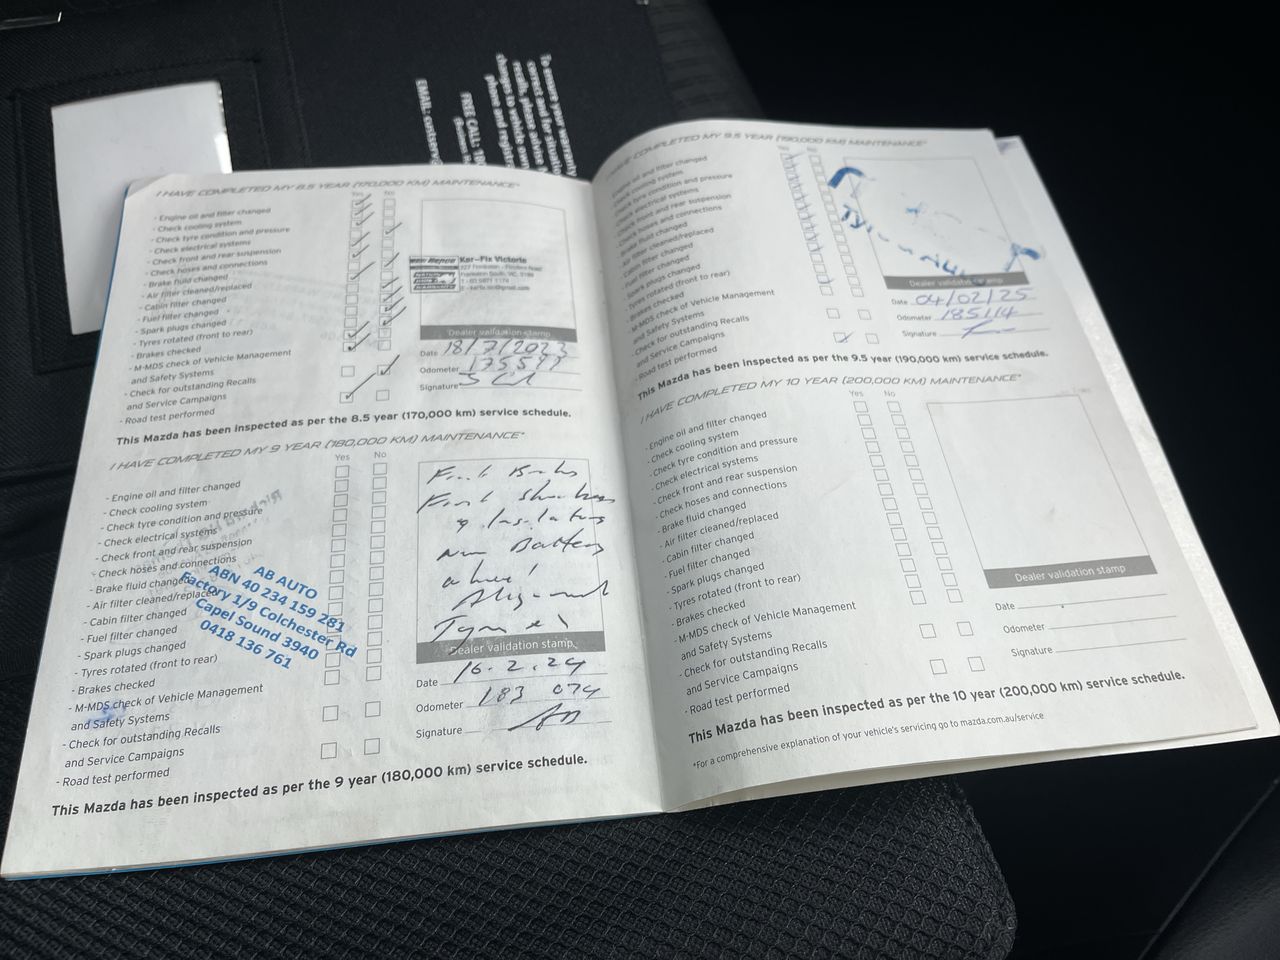 To ensure your warranty
correct and for situations
recalls, please advise
changes to vehicle own
phone and regist
FREE CALL: 180
EMAIL: custome
I HAVE COMPLETED MY 8.5 YEAR (170,000 KM) MAINTENANCE*
Yes No
- Engine oil and filter changed
- Check cooling system
- Check tyre condition and pressure
- Check electrical systems
- Check front and rear suspension
- Check hoses and connections
- Brake fluid changed
- Air filter cleaned/replaced
- Cabin filter changed
- Fuel filter changed
- Spark plugs changed
- Tyres rotated (front to rear)
- Brakes checked
- M-MDS check of Vehicle Management
and Safety Systems
- Check for outstanding Recalls
and Service Campaigns
- Road test performed
Kar-Fix Victoria
Dealer validation stamp
Date 18/7/2023
Odometer
Signature
This Mazda has been inspected as per the 8.5 year (170,000 km) service schedule.
I HAVE COMPLETED MY 9 YEAR (180,000 KM) MAINTENANCE*
Yes No
- Engine oil and filter changed
- Check cooling system
- Check tyre condition and pressure
- Check electrical systems
- Check front and rear suspension
- Check hoses and connections
- Brake fluid changed
- Air filter cleaned/replaced
- Cabin filter changed
- Fuel filter changed
- Spark plugs changed
- Tyres rotated (front to rear)
- Brakes checked
- M-MDS check of Vehicle Management
and Safety Systems
- Check for outstanding Recalls
and Service Campaigns
- Road test performed
AB AUTO
ABN 40 234 159 281
Factory 1/9 Colchester Rd
Capel Sound 3940
0418 136 761
New Battery
Alignment
Dealer validation stamp
Date 16.2.24
Odometer 183 074
Signature
This Mazda has been inspected as per the 9 year (180,000 km) service schedule.
I HAVE COMPLETED MY 9.5 YEAR (190,000 KM) MAINTENANCE*
Yes No
- Engine oil and filter changed
- Check cooling system
- Check tyre condition and pressure
- Check electrical systems
- Check front and rear suspension
- Check hoses and connections
- Brake fluid changed
- Air filter cleaned/replaced
- Cabin filter changed
- Fuel filter changed
- Spark plugs changed
- Tyres rotated (front to rear)
- Brakes checked
- M-MDS check of Vehicle Management
and Safety Systems
- Check for outstanding Recalls
and Service Campaigns
- Road test performed
Dealer validation stamp
Date 04/02/25
Odometer 185114
Signature
This Mazda has been inspected as per the 9.5 year (190,000 km) service schedule.
I HAVE COMPLETED MY 10 YEAR (200,000 KM) MAINTENANCE*
Yes No
- Engine oil and filter changed
- Check cooling system
- Check tyre condition and pressure
- Check electrical systems
- Check front and rear suspension
- Check hoses and connections
- Brake fluid changed
- Air filter cleaned/replaced
- Cabin filter changed
- Fuel filter changed
- Spark plugs changed
- Tyres rotated (front to rear)
- Brakes checked
- M-MDS check of Vehicle Management
and Safety Systems
- Check for outstanding Recalls
and Service Campaigns
- Road test performed
Dealer validation stamp
Date
Odometer
Signature
This Mazda has been inspected as per the 10 year (200,000 km) service schedule.
*For a comprehensive explanation of your vehicle's servicing go to mazda.com.au/service